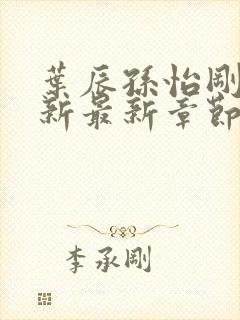 葉辰孫怡剛
新最新章節
李承剛